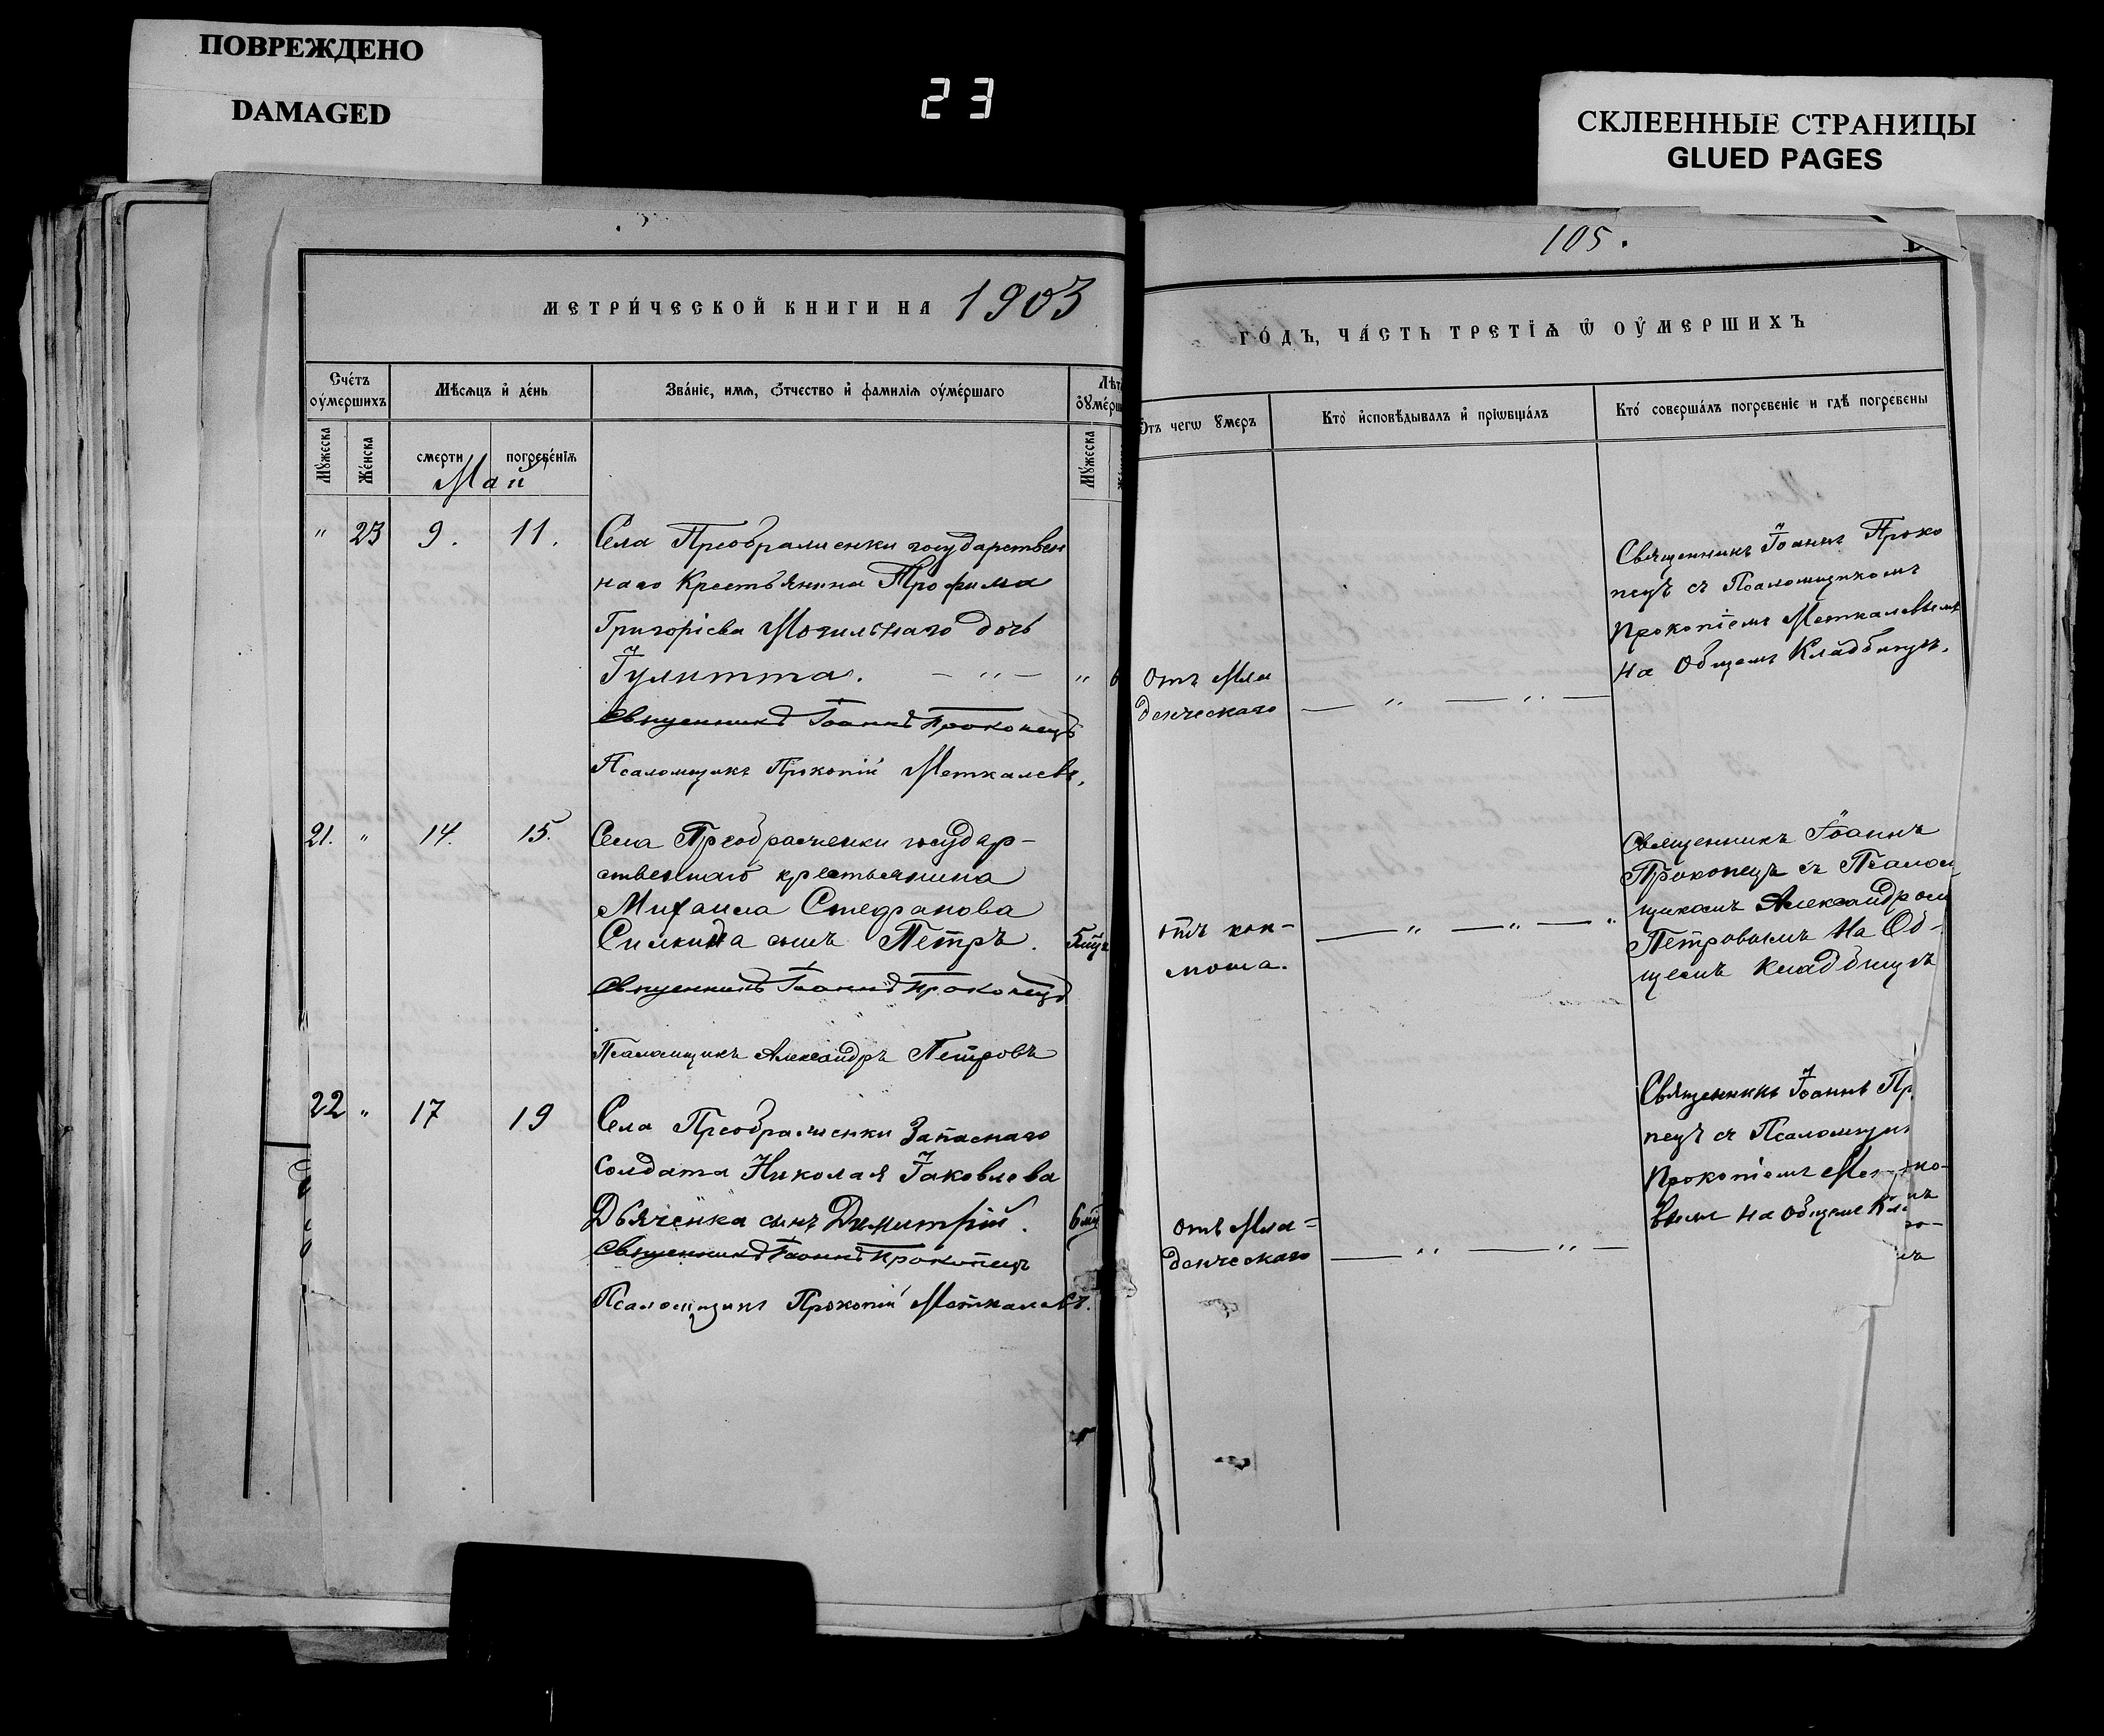 ПОВРЕЖДЕНО
DAMAGED
23
СКЛЕЕННЫЕ СТРАНИЦЫ
GLUED PAGES
105.
МЕТРИ́ЧЕСКОЙ КНИГИ НА 1903
ГО́ДЪ, ЧА́СТЬ ТРЕТІѦ Ѿ ОУ҆МЕРШИХЪ
Сче́тъ оу҆ме́ршихъ
Мѣсѧцъ и҆ де́нь
Зва́нїе, имѧ, ѻ҆́тчество и҆ фамилїѧ оу҆ме́ршаго
Лѣт
Ѿтъ чегѡ ᲂумеръ
Кто̀ и҆сповѣ́дывалъ и҆ прїѡбща́лъ
Кто̀ соверша́лъ погребенїе и гдѣ̀ погребены
Мꙋжеска
Же́нска
смерти
погребе́нїѧ
Мꙋжеска
Май
" 23 9. 11.
Села Преображенки государствен
наго Крестьянина Трофима
Григоріева Могильнаго дочь
Іулитта. — " — "
Священникъ Іоаннъ Прокопецъ
Псаломщикъ Прокопій Меткалевъ,
отъ Мла
денческаго — " — " —
Священникъ Іоаннъ Проко
пецъ съ Псаломщикомъ
Прокопіемъ Меткалевымъ
на Общемъ Кладбищѣ.
21. " 14. 15.
Села Преображенки государ-
ственнаго крестьянина
Михаила Стефанова
сынъ Петръ.
Священникъ Іоаннъ Прокопецъ
Псаломщикъ Александръ Петровъ
отъ кок-
люша. — " — " — "
Священникъ Іоаннъ
Прокопецъ съ Псалом
щикомъ Александром
Петровымъ на Об-
щемъ кладбищѣ
22 " 17 19
Села Преображенки Запаснаго
солдата Николая Іаковлева
Дьяченка сынъ Димитрій.
Священникъ Іоаннъ Прокопецъ
Псаломщикъ Прокопій Меткалевъ.
отъ Мла-
денческаго — " — " —
Священникъ Іоаннъ Пр
пецъ съ Псаломщик
Прокопіемъ Мет
вымъ на общемъ Кла